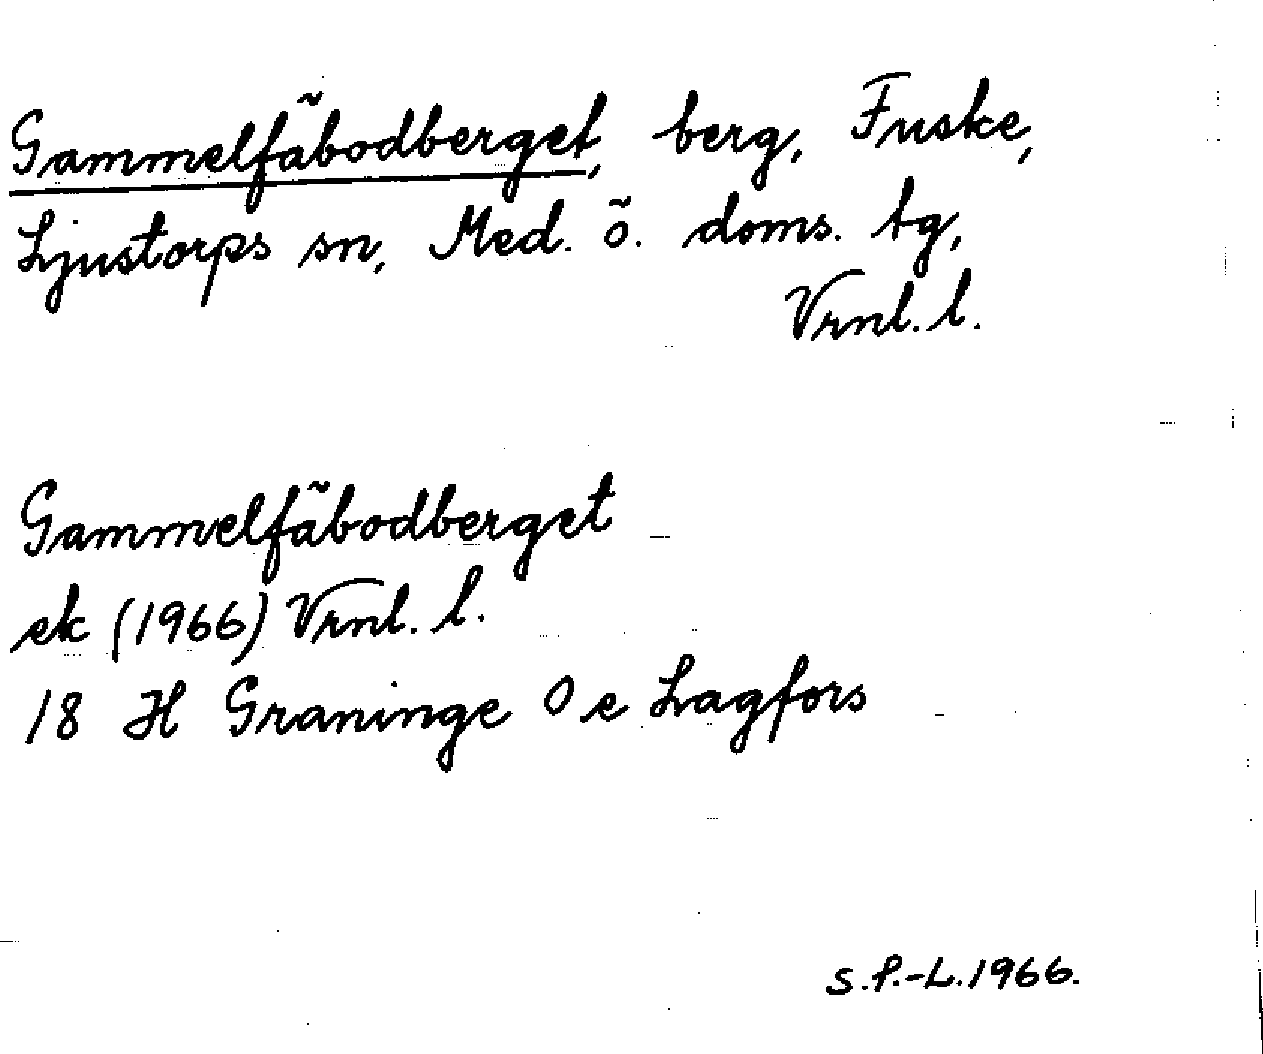 Gammelfäbodberget, berg, Fuske,
Ljustorps sn, Med. ö. doms. tg,
Vrnl. l.
Gammelfäbodberget
ek (1966) Vrnl. l.
18 H Graninge 0 e Lagfors
S.P.-L.1966.